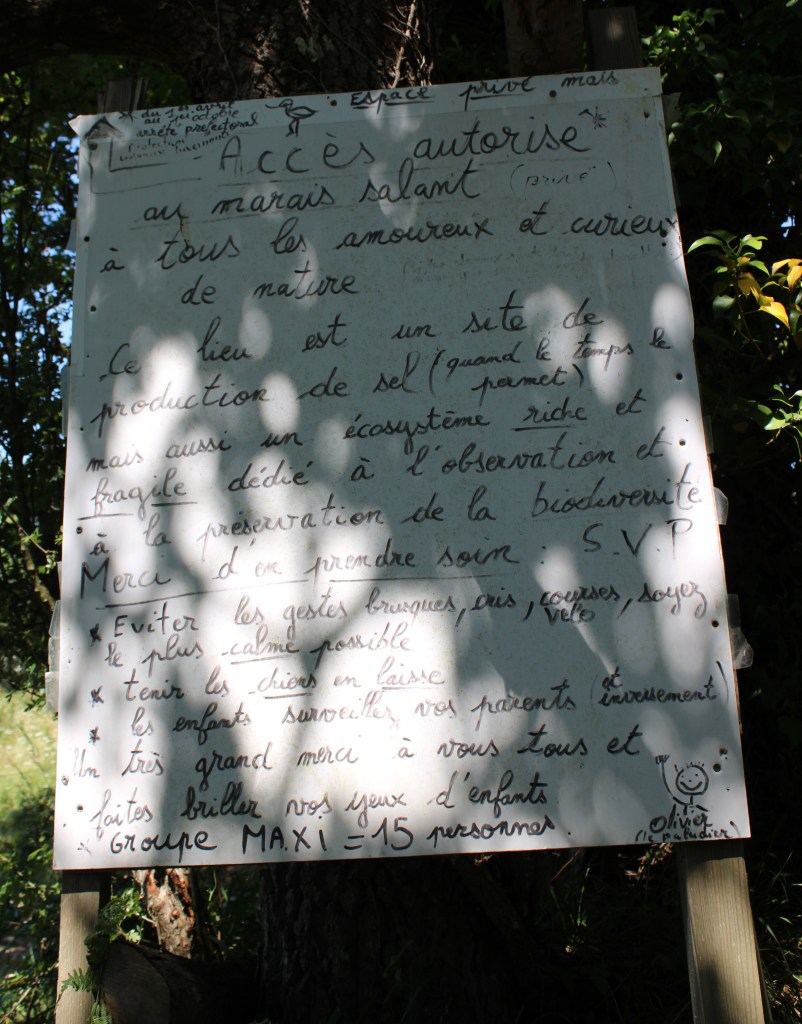 Espace privé mais
* du 1er avril
au 1er octobre
arrêté préfectoral
Accès autorisé *
au marais salant (privé)
à tous les amoureux et curieux
de nature
Ce lieu est un site de
production de sel (quand le temps le
permet)
mais aussi un écosystème riche et
fragile dédié à l'observation et
à la préservation de la biodiversité
Merci d'en prendre soin : S.V.P
* Eviter les gestes brusques, cris, courses, soyez
vélo
le plus calme possible
* tenir les chiens en laisse
* les enfants surveillez vos parents (et
inversement)
Un très grand merci à vous tous et
faites briller vos yeux d'enfants
* GROUPE MAXI = 15 personnes.
Olivier
(le paludier)